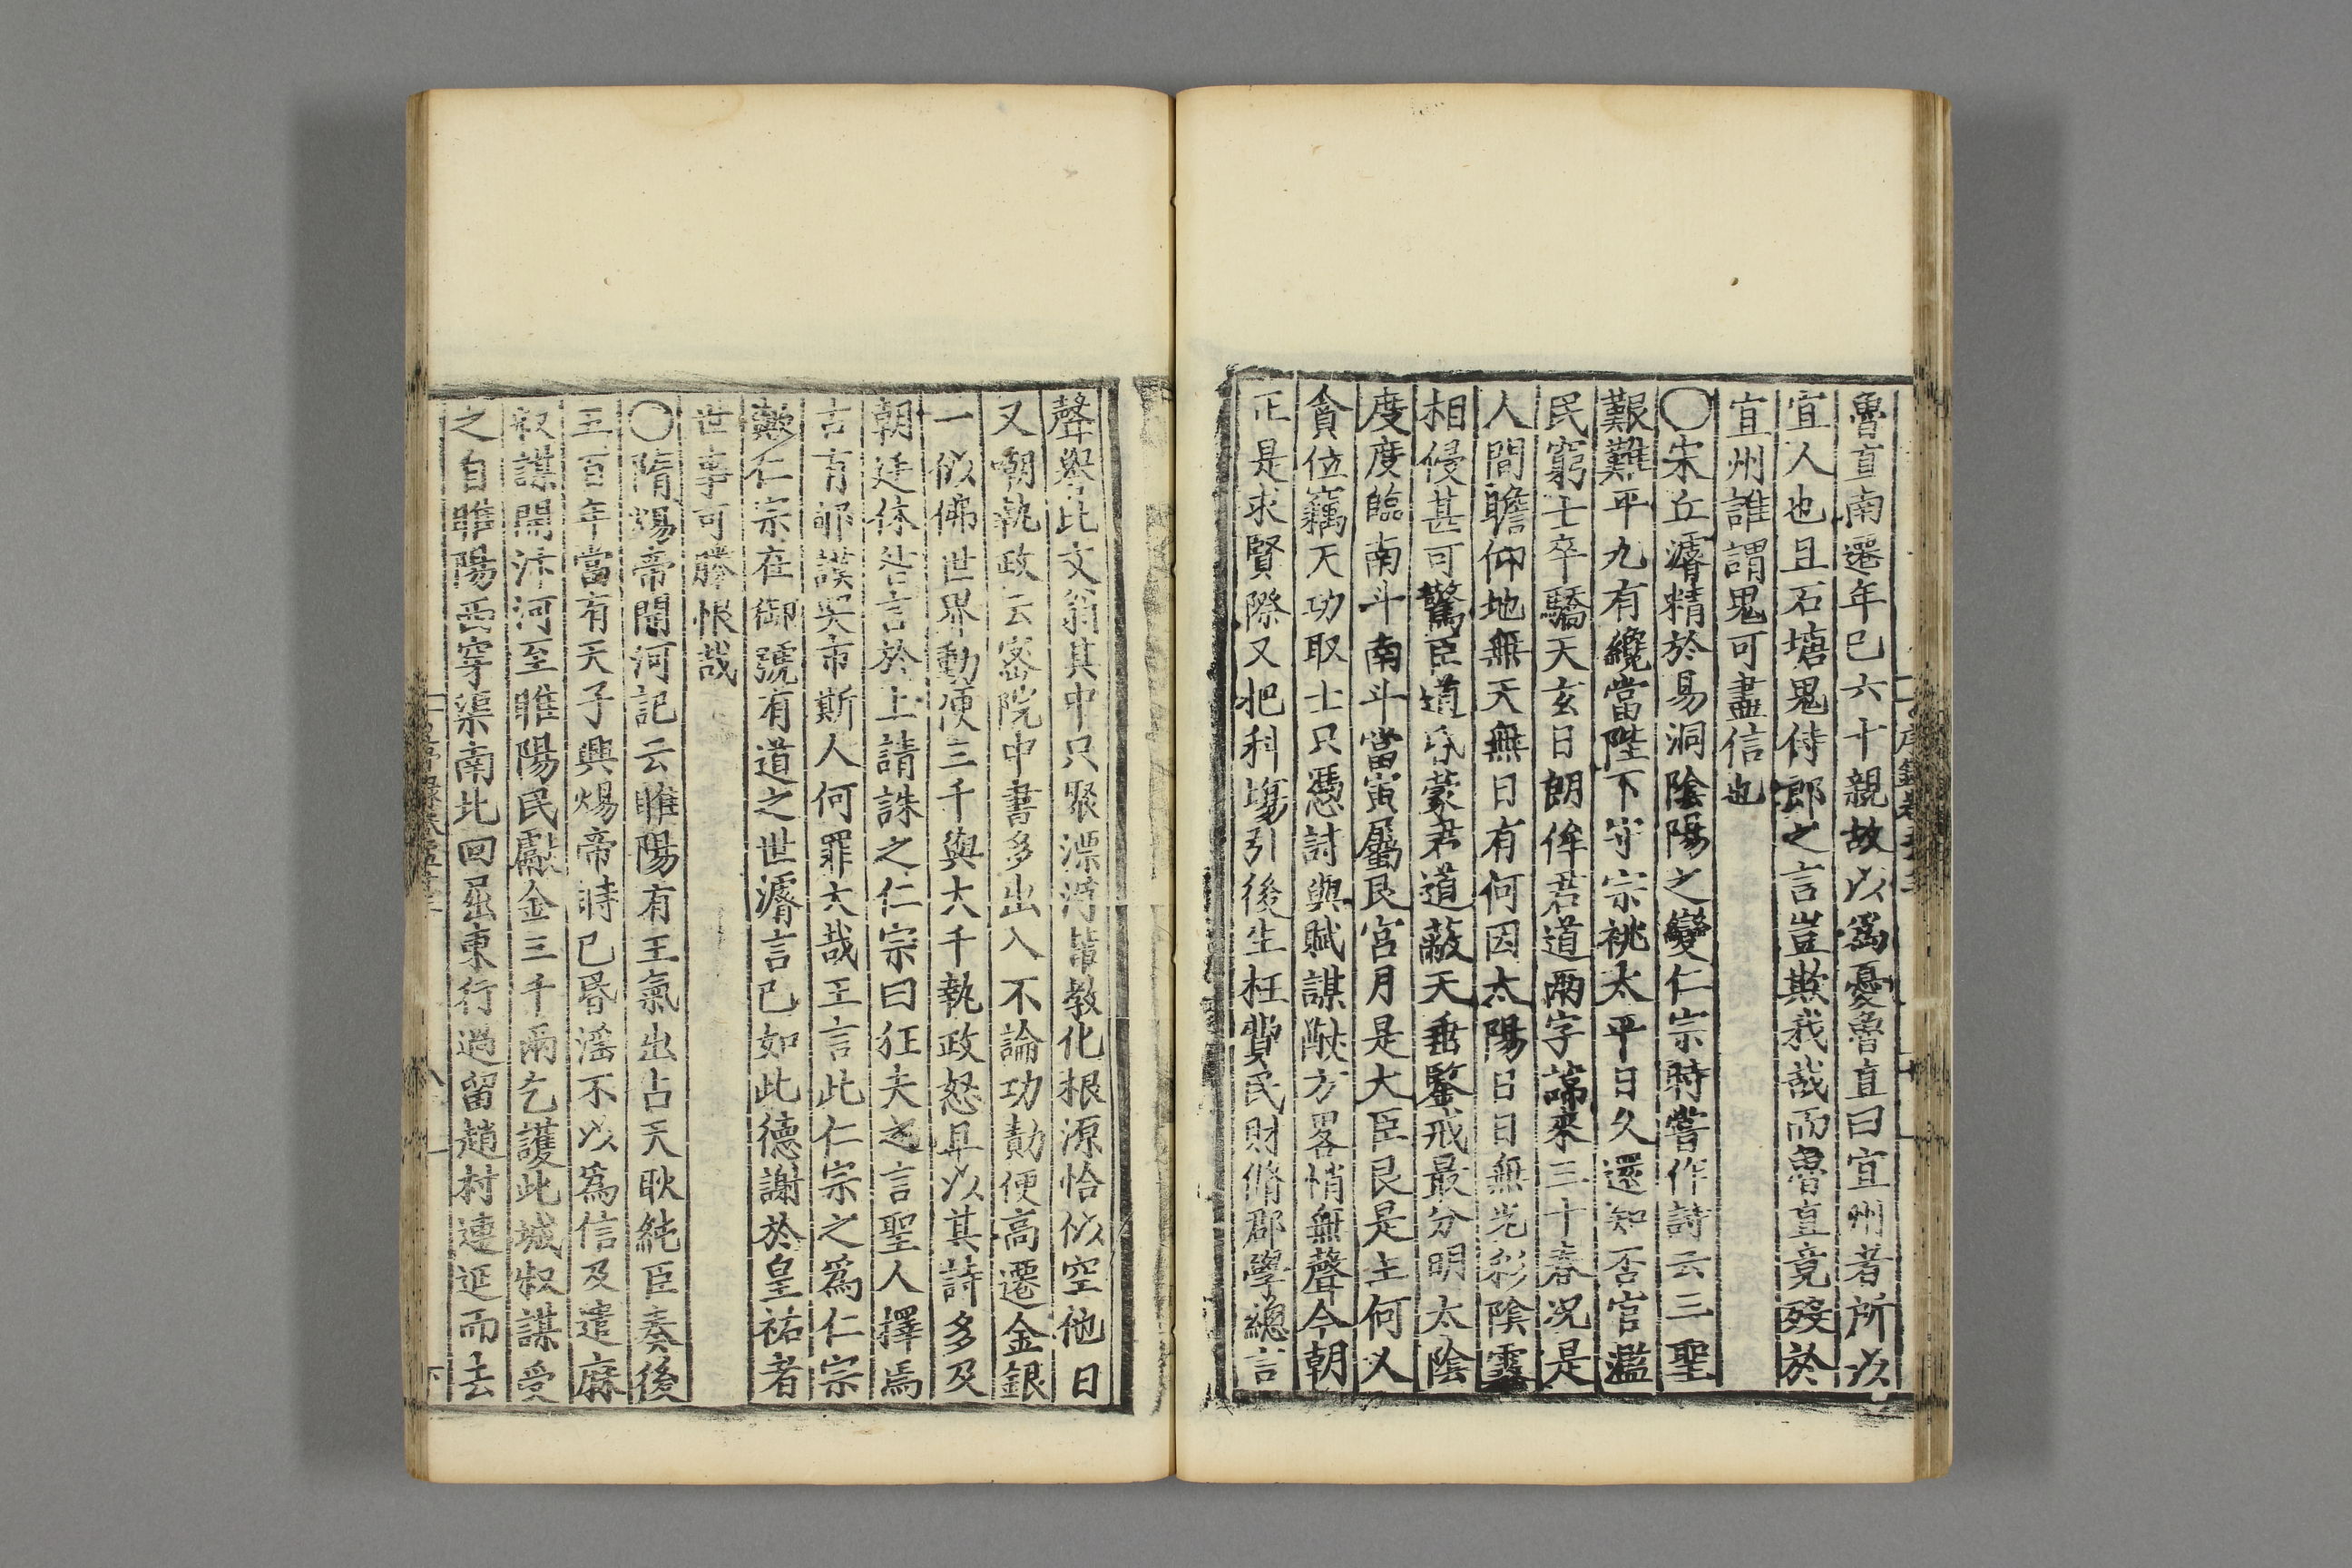 魯直南遷年已六十親故以爲憂魯直曰宜州者所以
宜人也且石塘鬼侍郎之言豈欺我哉而魯直竟歿於
宜州誰謂鬼可盡信也
〇宋丘濬精於易洞陰陽之變仁宗時嘗作詩云三聖
艱難平九有纔當陛下守宗祧太平日久還知否官濫
民窮士卒驕天玄日朗侔君道兩字蒂來三十春况是
人間瞻仰地無天無日有何因太陽日日無光彩陰霧
相侵甚可驚臣道昏蒙君道蔽天垂鑒戒最分明太陰
度度臨南斗南斗當寅屬艮宮月是大臣艮是主何人
貪位竊天功取士只憑詩與賦謀猷方畧悄無聲今朝
正是求賢際又把科塲引後生枉費民財脩郡學總言
聲譽比文翁其中只聚漂浮輩教化根源恰似空他日
又嘲執政云密院中書多出入不論功勣便高遷金銀
一似佛世界動便三千與大千執政怒具以其詩多及
朝廷休咎言於上請誅之仁宗曰狂夫之言聖人擇焉
古有郇謨哭市斯人何罪大哉王言此仁宗之爲仁宗
歟仁宗在御號有道之世濬言已如此德謝於皇祐者
世事可勝恨哉
〇隋煬帝開河記云睢陽有王氣出占天耿純臣奏後
五百年當有天子興煬帝時已昬淫不以爲信及遣麻
叔謀開汴河至睢陽民獻金三千兩乞護此城叔謀受
之自睢陽西穿渠南北回屈東行過留趙村連延而去